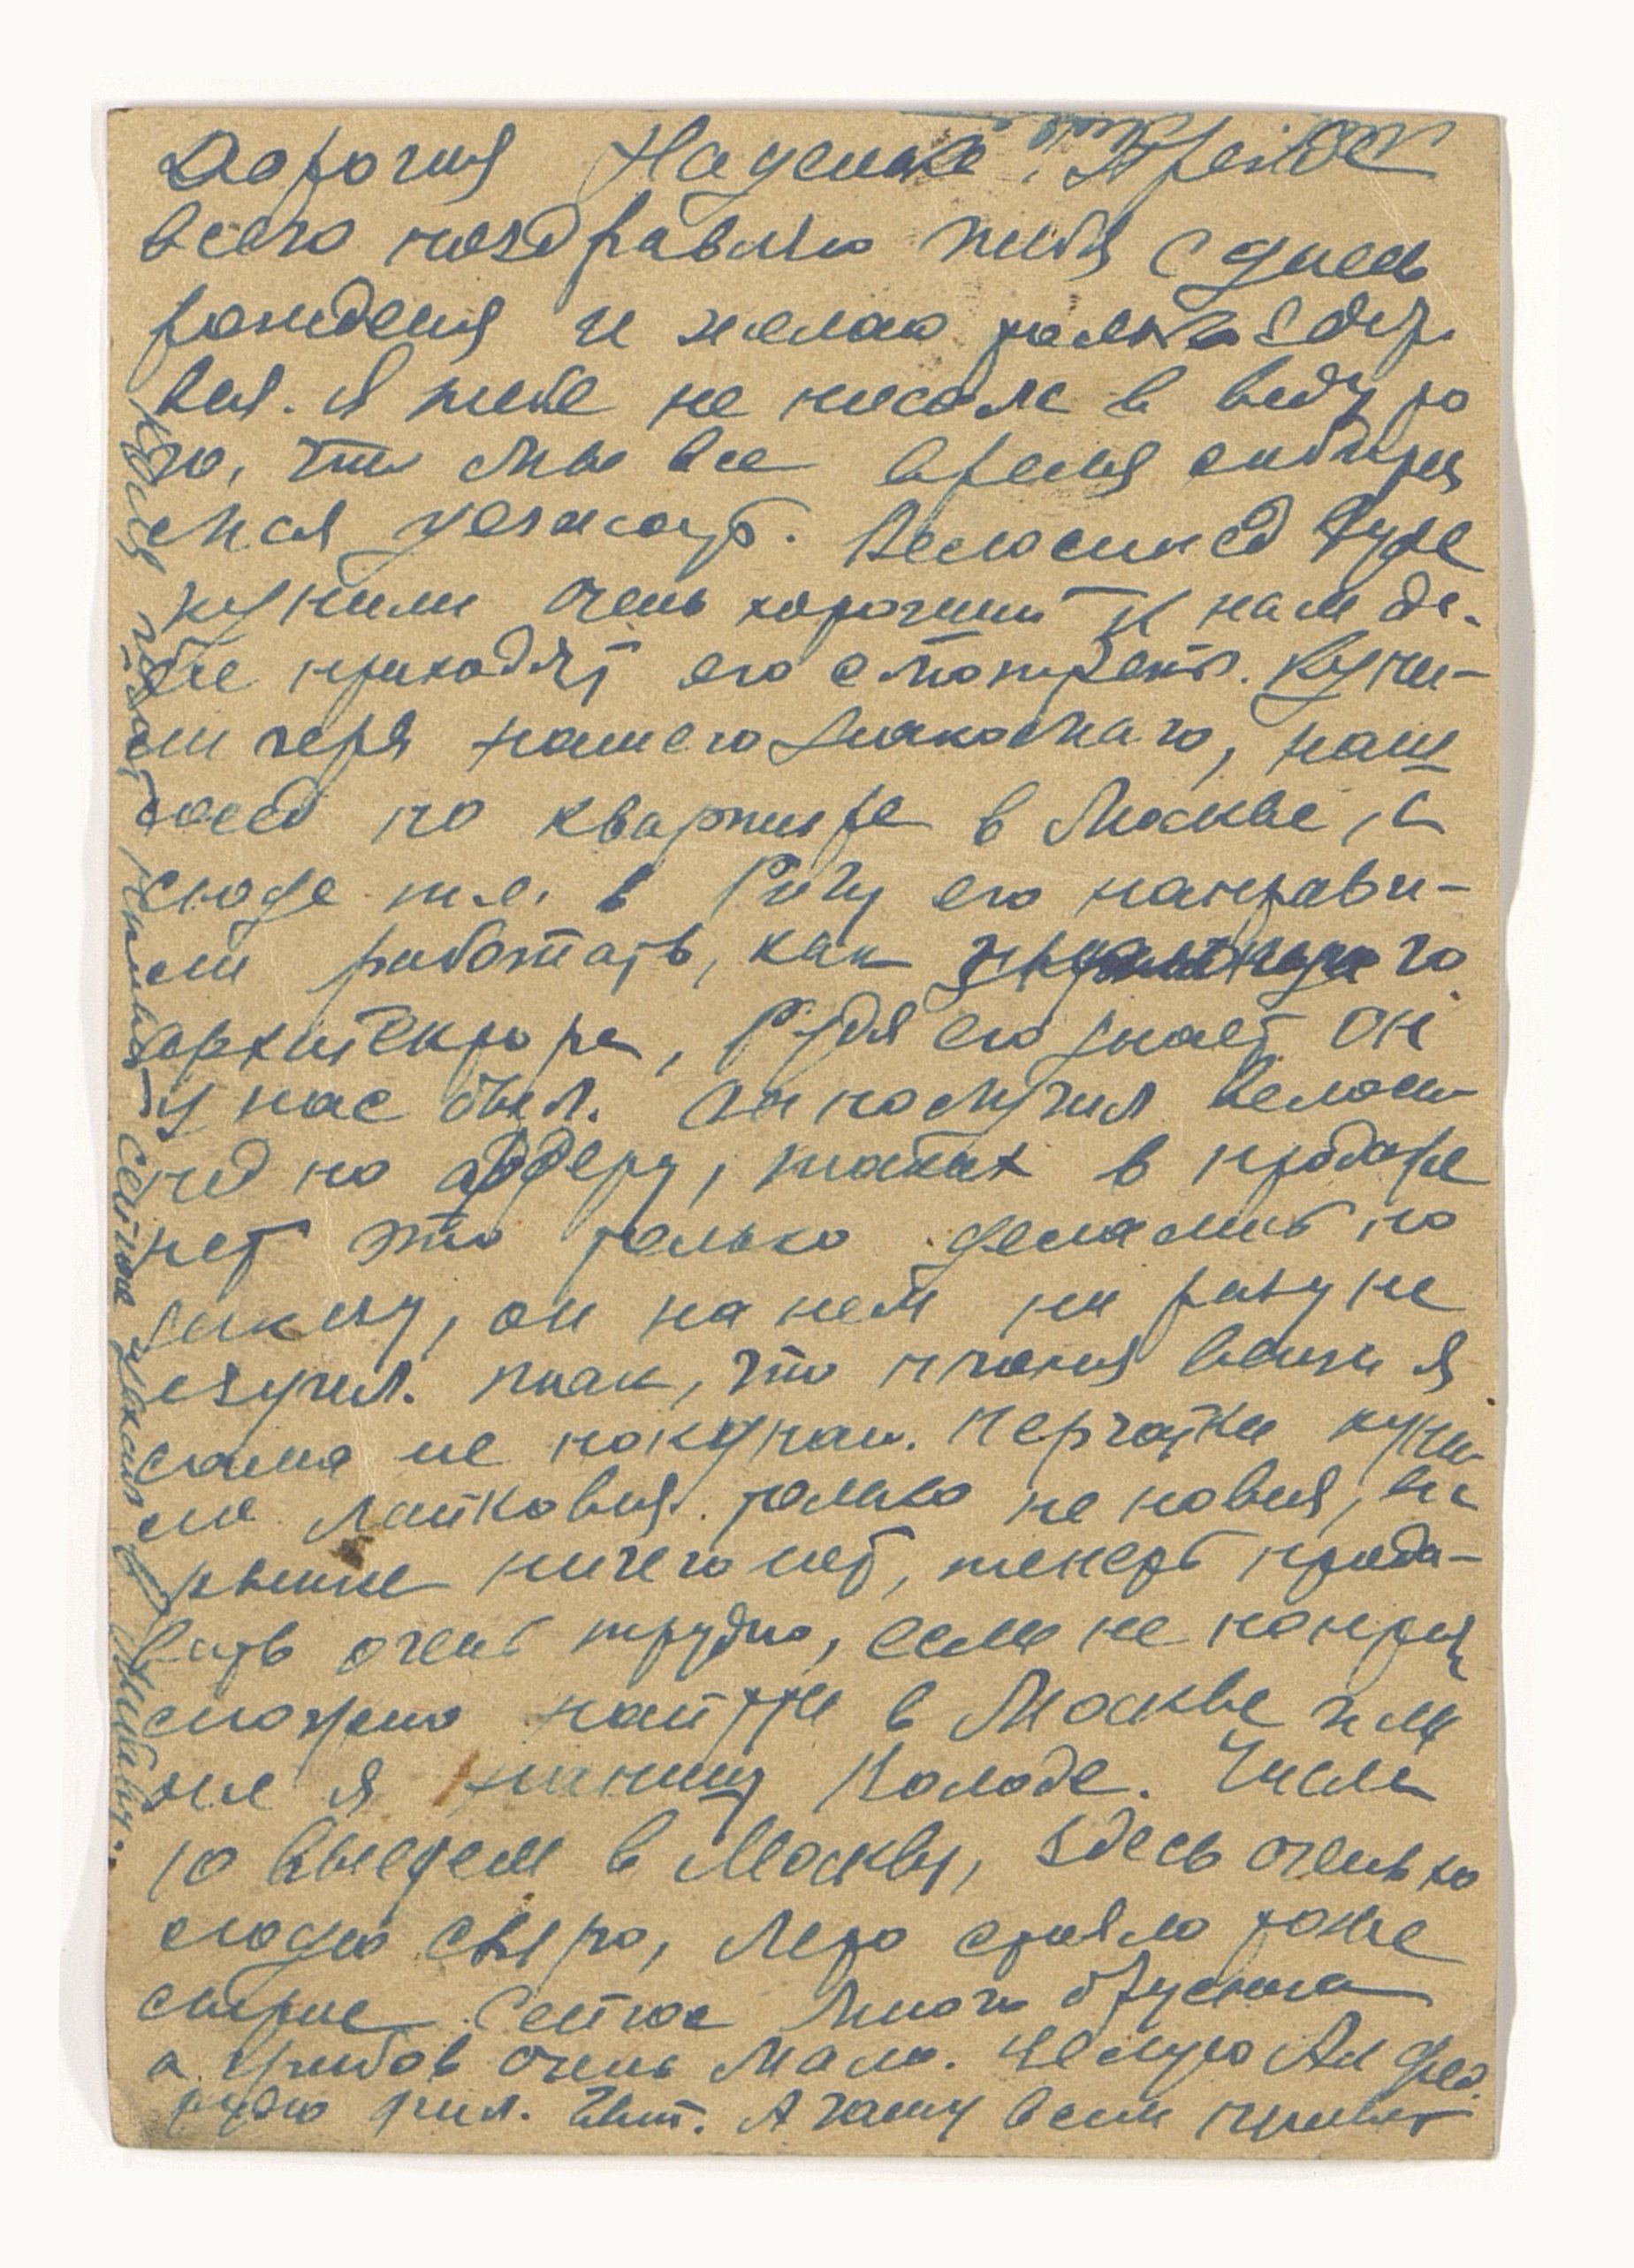 Дорогия Наденька! Прежде
всего поздравляю тебя с днем
рождения и желаю только здор
вия. Я тебе не писала в виду то
го, что мы все время собирае
мся уезжать. Велосипед Руде
купили очень хороший к нам да-
же приходят его смотреть. Купи-
ли через нашего знакомаго, наш
сосед по квартире в Москве, а
сюда т.е. в Ригу его направи-
ли работать, как
архитектора, Рудя его знает он
у нас был. Он получил велоси
пед по ордеру, таких в продаже
нет это только делались по
заказу, он на нем ни разу не
ездил. так, что плохия вещи я
сама не покупаю. Перчатки купи
ла лайковыя только не новыя, на
рынке ничего нет, теперь прода-
вать очень трудно, если не
можно найти в Москве или
же я напишу Володе. Числа
10 выедем в Москву, здесь очень хо
лодно сыро, лето стояло тоже
сырое. Сейчас много брусники
а грибов очень мало. Целую
Рудю А папу всем привет
Коля сейчас уехал в